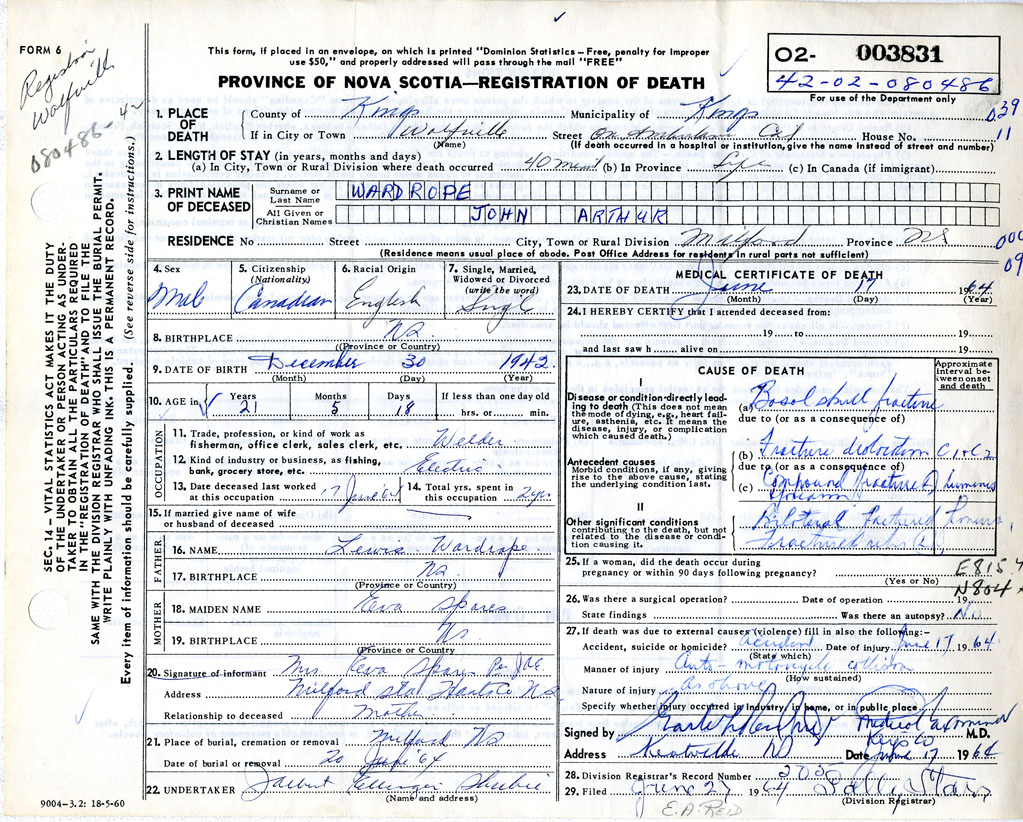 FORM 6
Registrar
Wolfville
080486-
42
This form, if placed in an envelope, on which is printed "Dominion Statistics – Free, penalty for improper
use $50," and properly addressed will pass through the mail "FREE"
PROVINCE OF NOVA SCOTIA—REGISTRATION OF DEATH
02- 003831
42-02-080486
For use of the Department only
039
11
SEC. 14 – VITAL STATISTICS ACT MAKES IT THE DUTY
OF THE UNDERTAKER OR PERSON ACTING AS UNDER-
TAKER TO OBTAIN ALL THE PARTICULARS REQUIRED
IN THE "REGISTRATION OF DEATH" AND TO FILE THE
SAME WITH THE DIVISION REGISTRAR WHO SHALL ISSUE THE BURIAL PERMIT.
WRITE PLAINLY WITH UNFADING INK. THIS IS A PERMANENT RECORD.
Every item of information should be carefully supplied. (See reverse side for instructions.)
1. PLACE OF DEATH
County of Kings Municipality of Kings
If in City or Town Wolfville Street On Ambulance House No.
(Name) (If death occurred in a hospital or institution, give the name instead of street and number)
2. LENGTH OF STAY (in years, months and days)
(a) In City, Town or Rural Division where death occurred 40 min (b) In Province Life (c) In Canada (if immigrant)
3. PRINT NAME OF DECEASED
Surname or Last Name WARDROPE
All Given or Christian Names JOHN ARTHUR
RESIDENCE No Street City, Town or Rural Division Milford Province NS
(Residence means usual place of abode. Post Office Address for residents in rural parts not sufficient)
000
09
4. Sex Male
5. Citizenship (Nationality) Canadian
6. Racial Origin English
7. Single, Married, Widowed or Divorced (write the word) Single
8. BIRTHPLACE NS
(Province or Country)
9. DATE OF BIRTH December 30 1942
(Month) (Day) (Year)
10. AGE in Years 21 Months 5 Days 18 If less than one day old hrs. or min.
OCCUPATION
11. Trade, profession, or kind of work as
fisherman, office clerk, sales clerk, etc. Welder
12. Kind of industry or business, as fishing,
bank, grocery store, etc. Electric
13. Date deceased last worked
at this occupation 17 June '64
14. Total yrs. spent in
this occupation 2 yrs
15. If married give name of wife
or husband of deceased
FATHER
16. NAME Lewis Wardrope
17. BIRTHPLACE NS
(Province or Country)
MOTHER
18. MAIDEN NAME Eva Spares
19. BIRTHPLACE NS
(Province or Country)
20. Signature of informant Mrs Eva Spares Per
Address Milford Stat Hants Co NS
Relationship to deceased Mother
21. Place of burial, cremation or removal Milford NS
Date of burial or removal 20 June 64
22. UNDERTAKER Ettinger Shubie
(Name and address)
9004–3.2: 18-5-60
MEDICAL CERTIFICATE OF DEATH
23. DATE OF DEATH June 17 1964
(Month) (Day) (Year)
24. I HEREBY CERTIFY that I attended deceased from:
19 to 19
and last saw h alive on 19
CAUSE OF DEATH
Approximate interval between onset and death
I
Disease or condition directly leading to death (This does not mean the mode of dying, e.g., heart failure, asthenia, etc. It means the disease, injury, or complication which caused death.)
(a) Basal skull fracture
due to (or as a consequence of)
Antecedent causes
Morbid conditions, if any, giving rise to the above cause, stating the underlying condition last.
(b) Fracture C1 & C2
due to (or as a consequence of)
(c) Compound fracture humerus
II
Other significant conditions
contributing to the death, but not related to the disease or condition causing it.
Bilateral fractured
Fractured ribs
25. If a woman, did the death occur during
pregnancy or within 90 days following pregnancy?
(Yes or No)
E815
N804
26. Was there a surgical operation? Date of operation 19
State findings Was there an autopsy? No
27. If death was due to external causes (violence) fill in also the following:–
Accident, suicide or homicide? Accident Date of injury June 17 1964
(State which)
Manner of injury Auto - motorcycle collision
(How sustained)
Nature of injury As above
Specify whether injury occurred in industry, in home, or in public place
Signed by Medical Examiner M.D.
Kings Co
Address Kentville NS Date June 17 1964
28. Division Registrar's Record Number 205
29. Filed June 27 1964 Sally Starr
(Division Registrar)
E. A. REID